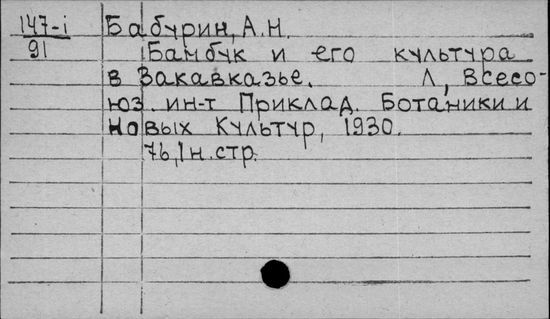 147-i Бабурин, А.Н.
91 Бамбук и его культура
в Закавказье. Л, Всесо-
юз. ин-т Приклад. Ботаники и
Новых Культур, 1930.
76, 1 н. стр.